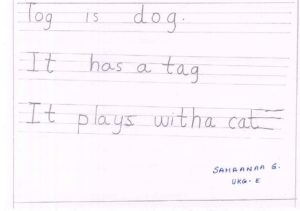 Tog is dog.
It has a tag
It plays witha cat
SAHAANAA G.
UKG-E